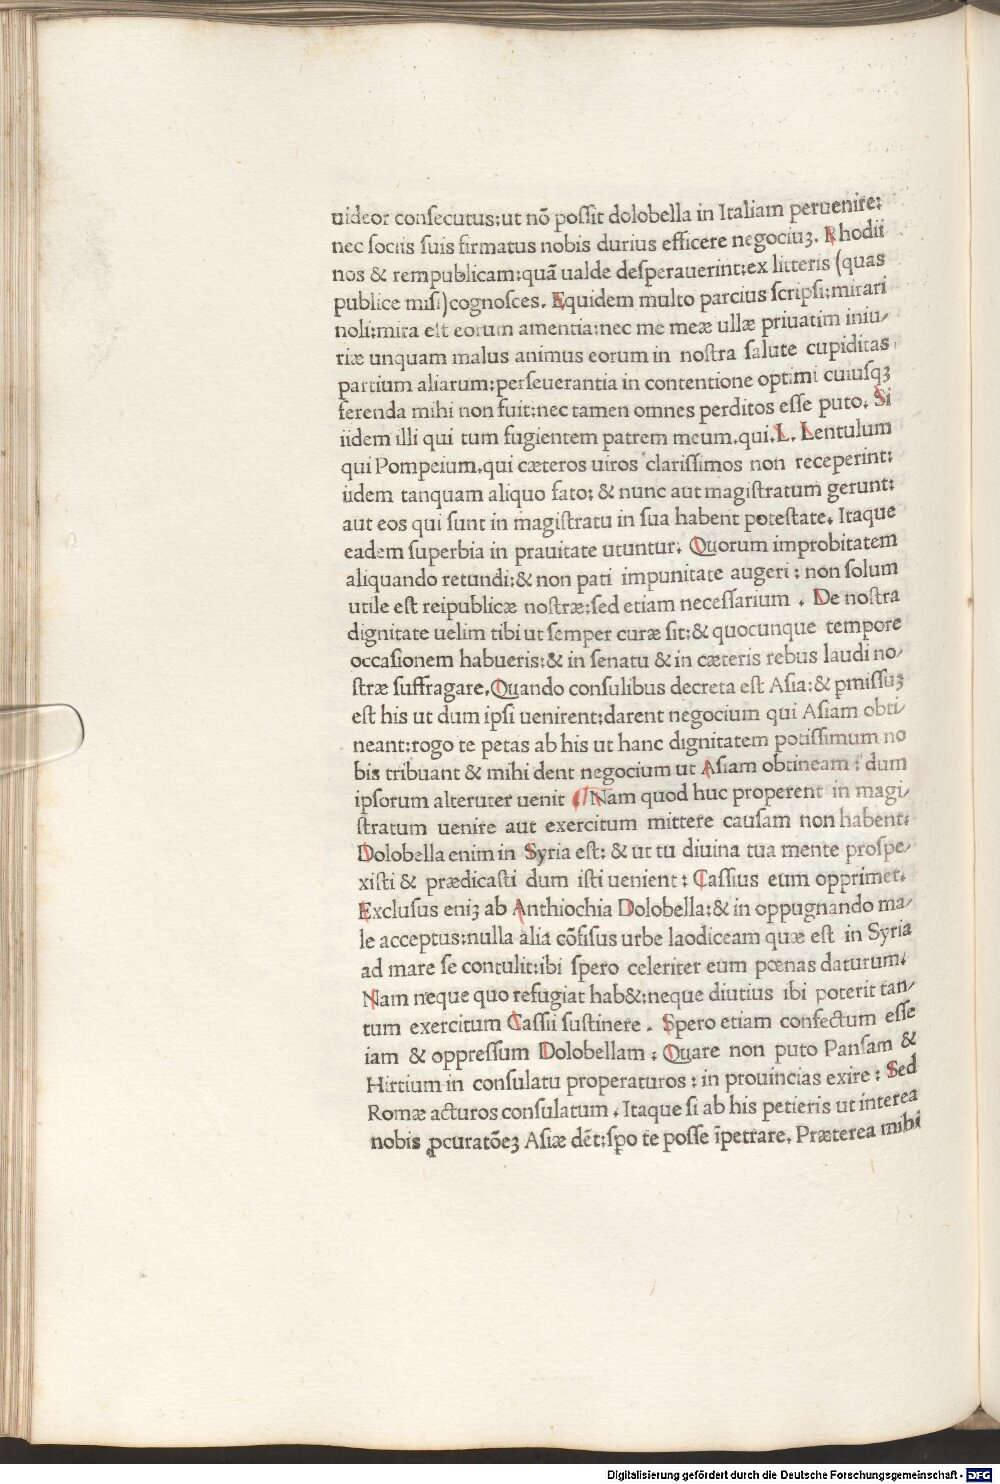 uideor conſecutus:ut nõ poſſit dolobella in Italiam peruenire:
nec ſociis ſuis firmatus nobis durius efficere negociuꝫ. Rhodii
nos & rempublicam:quã ualde deſperauerint:ex litteris (quas
publice miſi)cognoſces. Equidem multo parcius ſcripſi:mirari
noli:mira eſt eorum amentia:nec me meæ ullæ priuatim iniu/
riæ unquam malus animus eorum in noſtra ſalute cupiditas
partium aliarum:perſeuerantia in contentione optimi cuiuſqꝫ
ferenda mihi non fuit:nec tamen omnes perditos eſſe puto. Si
iidem illi qui tum fugientem patrem meum.qui.L. Lentulum
qui Pompeium.qui cæteros uiros clariſſimos non receperint:
iidem tanquam aliquo fato: & nunc aut magiſtratum gerunt:
aut eos qui ſunt in magiſtratu in ſua habent poteſtate. Itaque
eadem ſuperbia in prauitate utuntur. Quorum improbitatem
aliquando retundi:& non pati impunitate augeri : non ſolum
utile eſt reipublicæ noſtræ:ſed etiam neceſſarium . De noſtra
dignitate uelim tibi ut ſemper curæ ſit:& quocunque tempore
occaſionem habueris:& in ſenatu & in cæteris rebus laudi no/
ſtræ ſuffragare.Quando conſulibus decreta eſt Aſia:& ꝑmiſſuꝫ
eſt his ut dum ipſi uenirent:darent negocium qui Aſiam obti/
neant:rogo te petas ab his ut hanc dignitatem potiſſimum no
bis tribuant & mihi dent negocium ut Aſiam obtineam : dum
ipſorum alteruter uenit Nam quod huc properent in magi/
ſtratum uenire aut exercitum mittere cauſam non habent:
Dolobella enim in Syria eſt: & ut tu diuina tua mente proſpe/
xiſti & prædicaſti dum iſti uenient : Caſſius eum opprimet.
Excluſus eniꝫ ab Anthiochia Dolobella:& in oppugnando ma/
le acceptus:nulla alia cõfiſus urbe laodiceam quæ eſt in Syria
ad mare ſe contulit:ibi ſpero celeriter eum pœnas daturum.
Nam neque quo refugiat hab&:neque diutius ibi poterit tan/
tum exercitum Caſſii ſuſtinere . Spero etiam confectum eſſe
iam & oppreſſum Dolobellam : Quare non puto Panſam &
Hirtium in conſulatu properaturos : in prouincias exire : Sed
Romæ acturos conſulatum . Itaque ſi ab his petieris ut interea
nobis ꝓcuratõeꝫ Aſiæ dẽt:ſpo te poſſe ĩpetrare. Præterea mihi
Digitalisierung gefördert durch die Deutsche Forschungsgemeinschaft - DFG